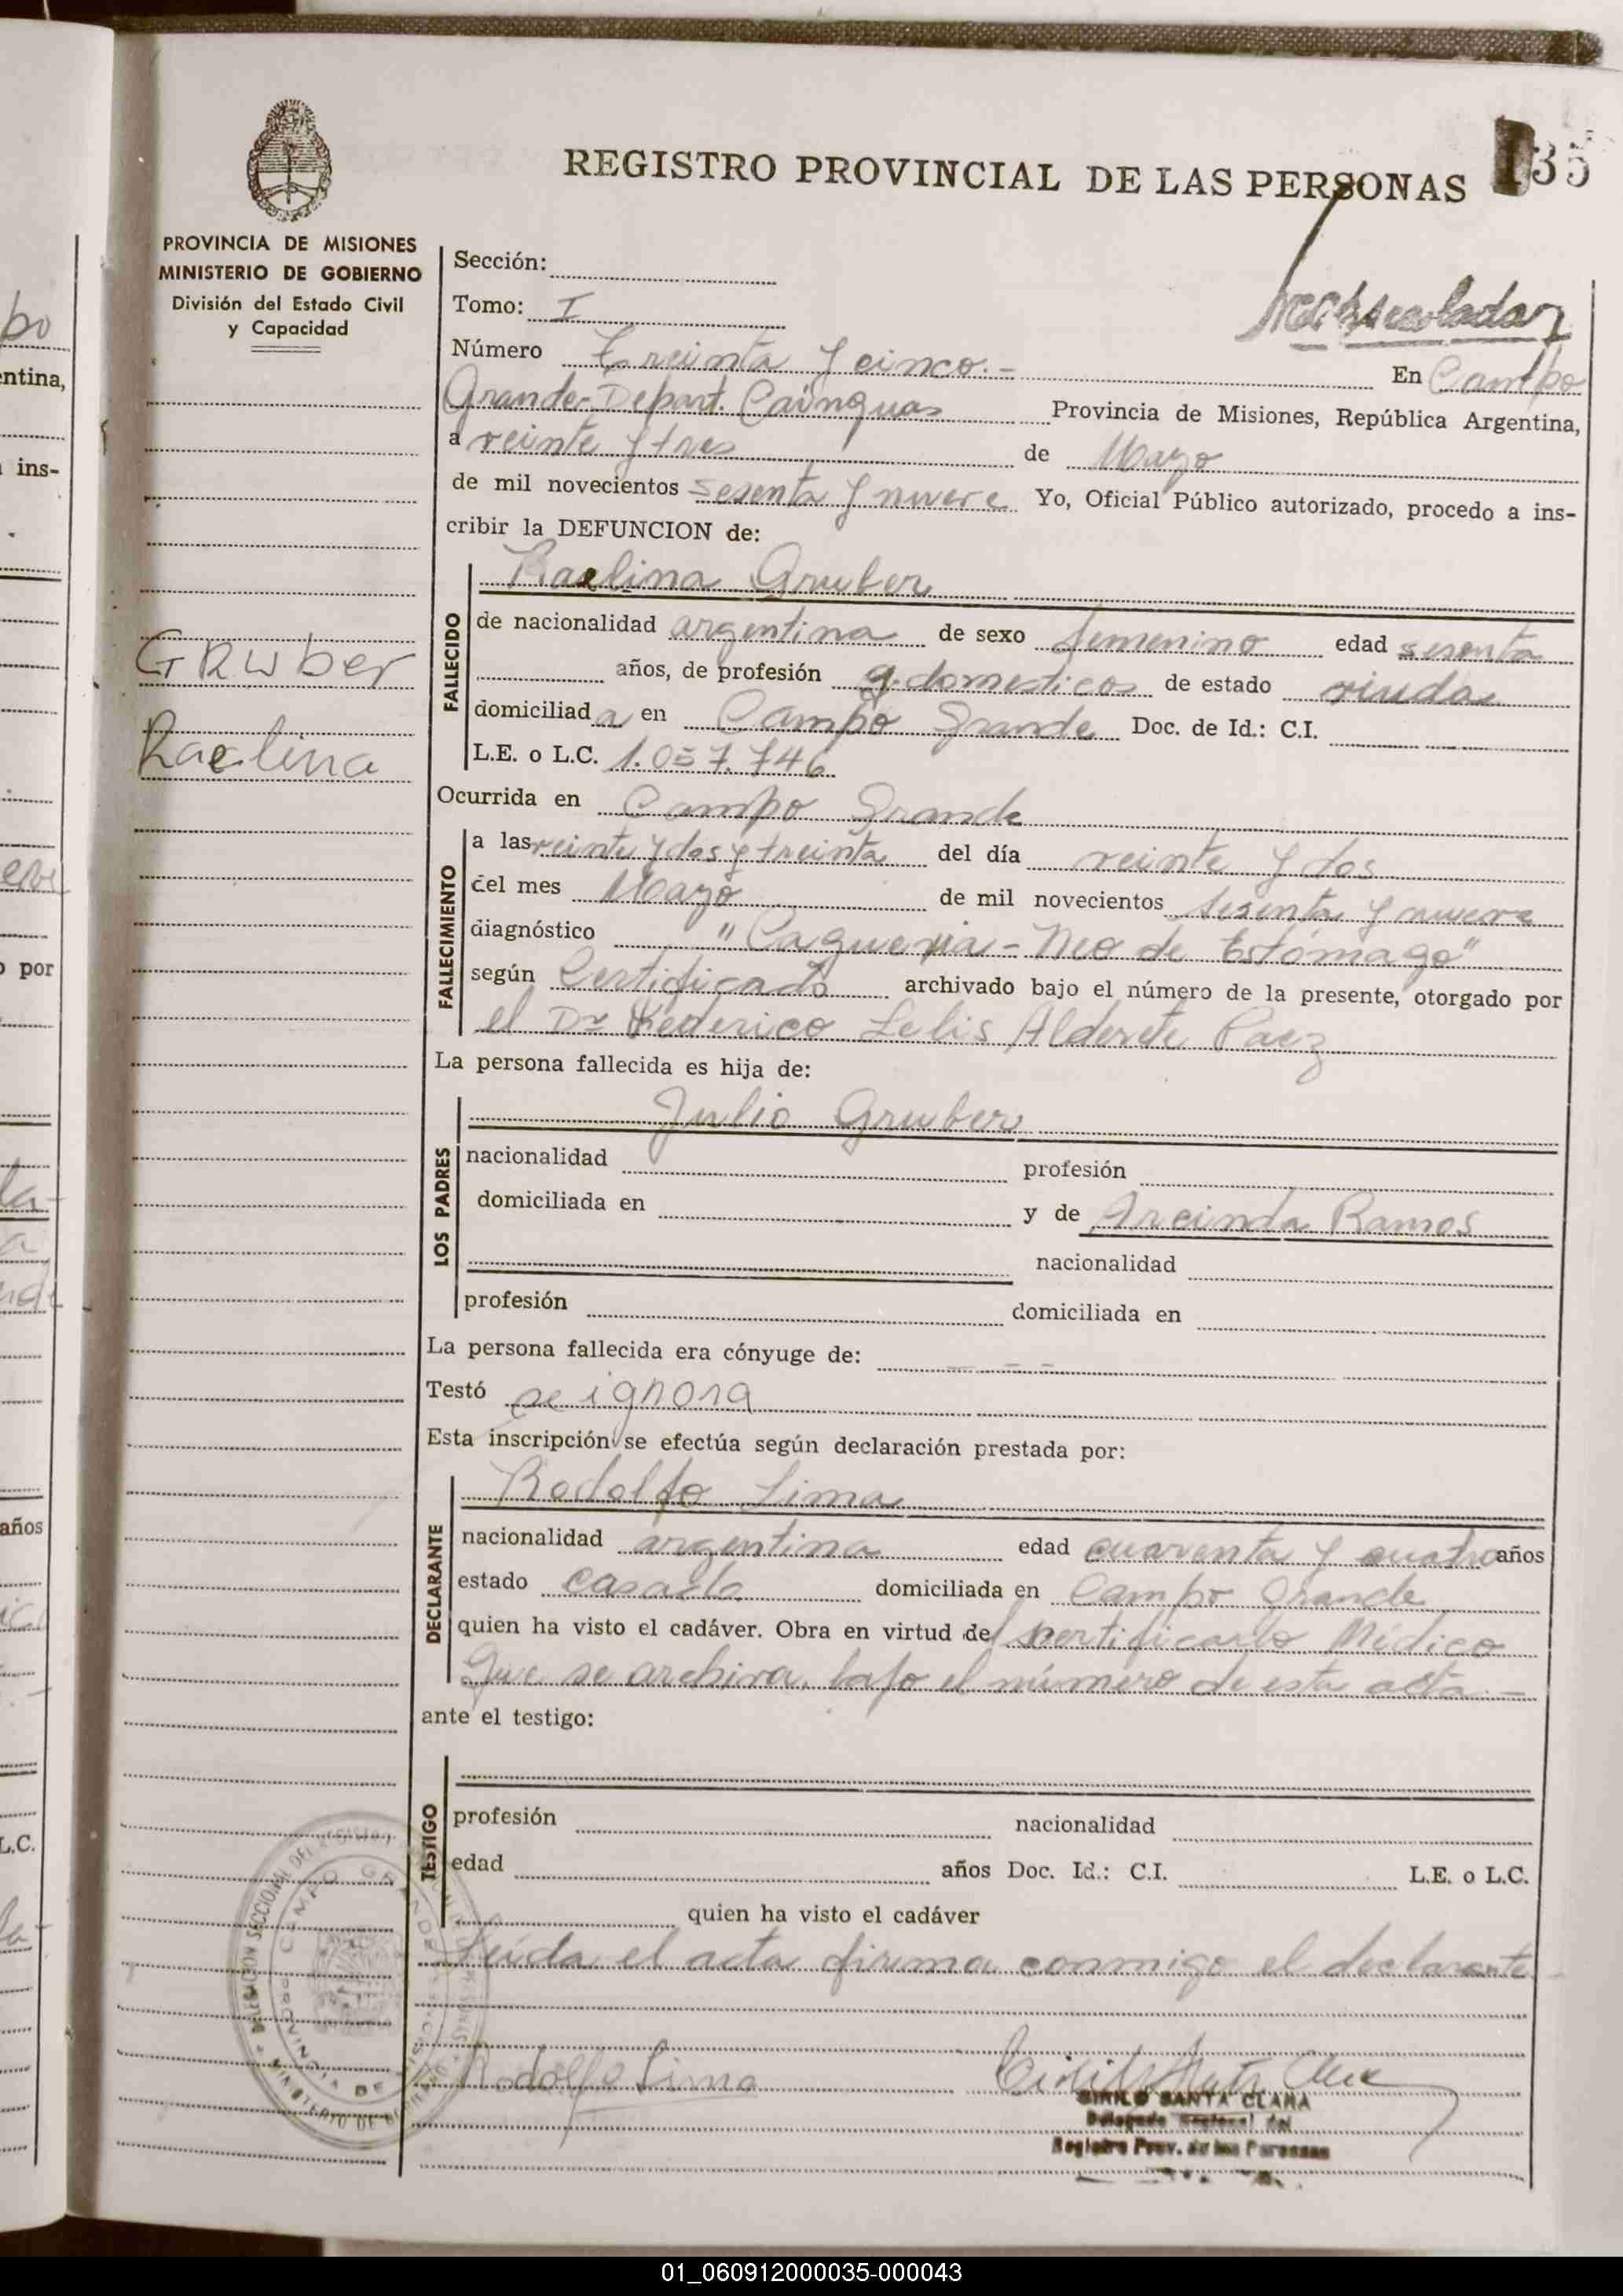 REGISTRO PROVINCIAL DE LAS PERSONAS
135
PROVINCIA DE MISIONES
MINISTERIO DE GOBIERNO
División del Estado Civil
y Capacidad
Sección:
Tomo: I
Número Treinta y cinco.- En Campo
Grande-Depart. Caïnguas Provincia de Misiones, República Argentina,
a veinte y tres de Mayo
de mil novecientos sesenta y nueve Yo, Oficial Público autorizado, procedo a ins-
cribir la DEFUNCION de:
Raelina Gruber
FALLECIDO
de nacionalidad argentina de sexo femenino edad sesenta
años, de profesión q. domesticos de estado viuda
domiciliada en Campo Grande Doc. de Id.: C.I.
L.E. o L.C. 1.057.746
Gruber
Raelina
Ocurrida en Campo Grande
FALLECIMIENTO
a las veinte y dos y treinta del día veinte y dos
del mes Mayo de mil novecientos sesenta y nueve
diagnóstico "Caquexia - Neo de Estómago"
según Certificado archivado bajo el número de la presente, otorgado por
el Dr Federico Lelis Alderete Paez
La persona fallecida es hija de:
Julio Gruber
LOS PADRES
nacionalidad profesión
domiciliada en y de Arcinda Ramos
nacionalidad
profesión domiciliada en
La persona fallecida era cónyuge de: - - -
Testó se ignora
Esta inscripción se efectúa según declaración prestada por:
Rodolfo Lima
DECLARANTE
nacionalidad argentina edad cuarenta y cuatro años
estado casado domiciliada en Campo Grande
quien ha visto el cadáver. Obra en virtud del certificado Médico
que se archiva bajo el número de esta acta.-
ante el testigo:
TESTIGO
profesión nacionalidad
edad años Doc. Id.: C.I. L.E. o L.C.
quien ha visto el cadáver
Leída el acta firma conmigo el declarante
Rodolfo Lima
CIRILO SANTA CLARA
Delegado Seccional del
Registro Prov. de las Personas
DELEGACION SECCIONAL DEL REGISTRO
CAMPO GRANDE
PROVINCIA DE MISIONES
MINISTERIO DE GOBIERNO
01_060912000035-000043